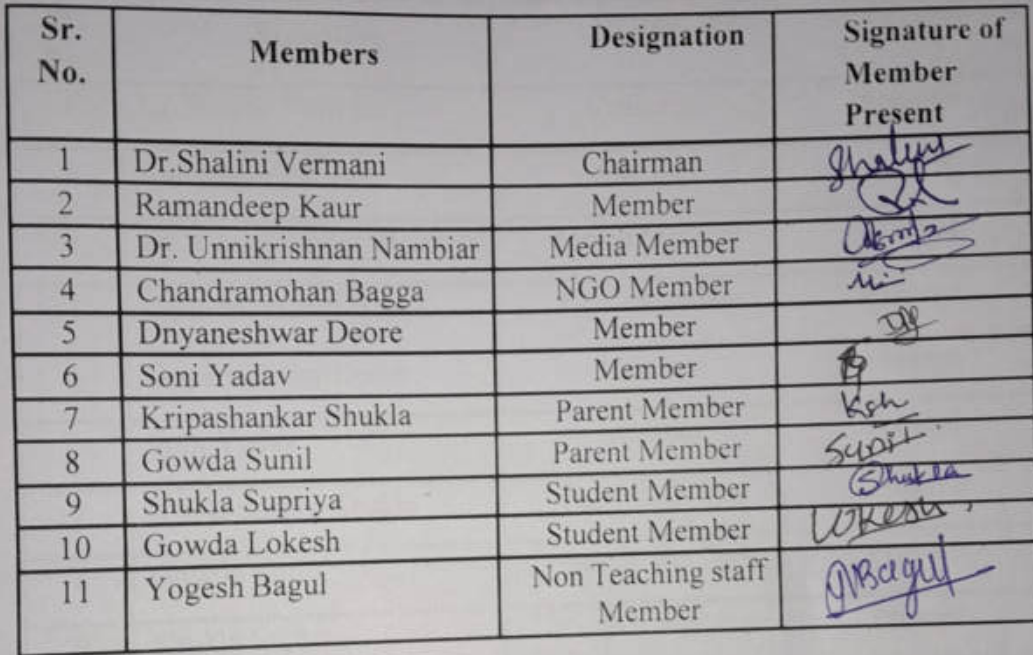 Sr. No. Members Designation Signature of Member Present
1 Dr.Shalini Vermani Chairman Shalini
2 Ramandeep Kaur Member
3 Dr. Unnikrishnan Nambiar Media Member
4 Chandramohan Bagga NGO Member
5 Dnyaneshwar Deore Member
6 Soni Yadav Member
7 Kripashankar Shukla Parent Member Ksh
8 Gowda Sunil Parent Member Sunil
9 Shukla Supriya Student Member Shukla
10 Gowda Lokesh Student Member Lokesh
11 Yogesh Bagul Non Teaching staff Member YBagul